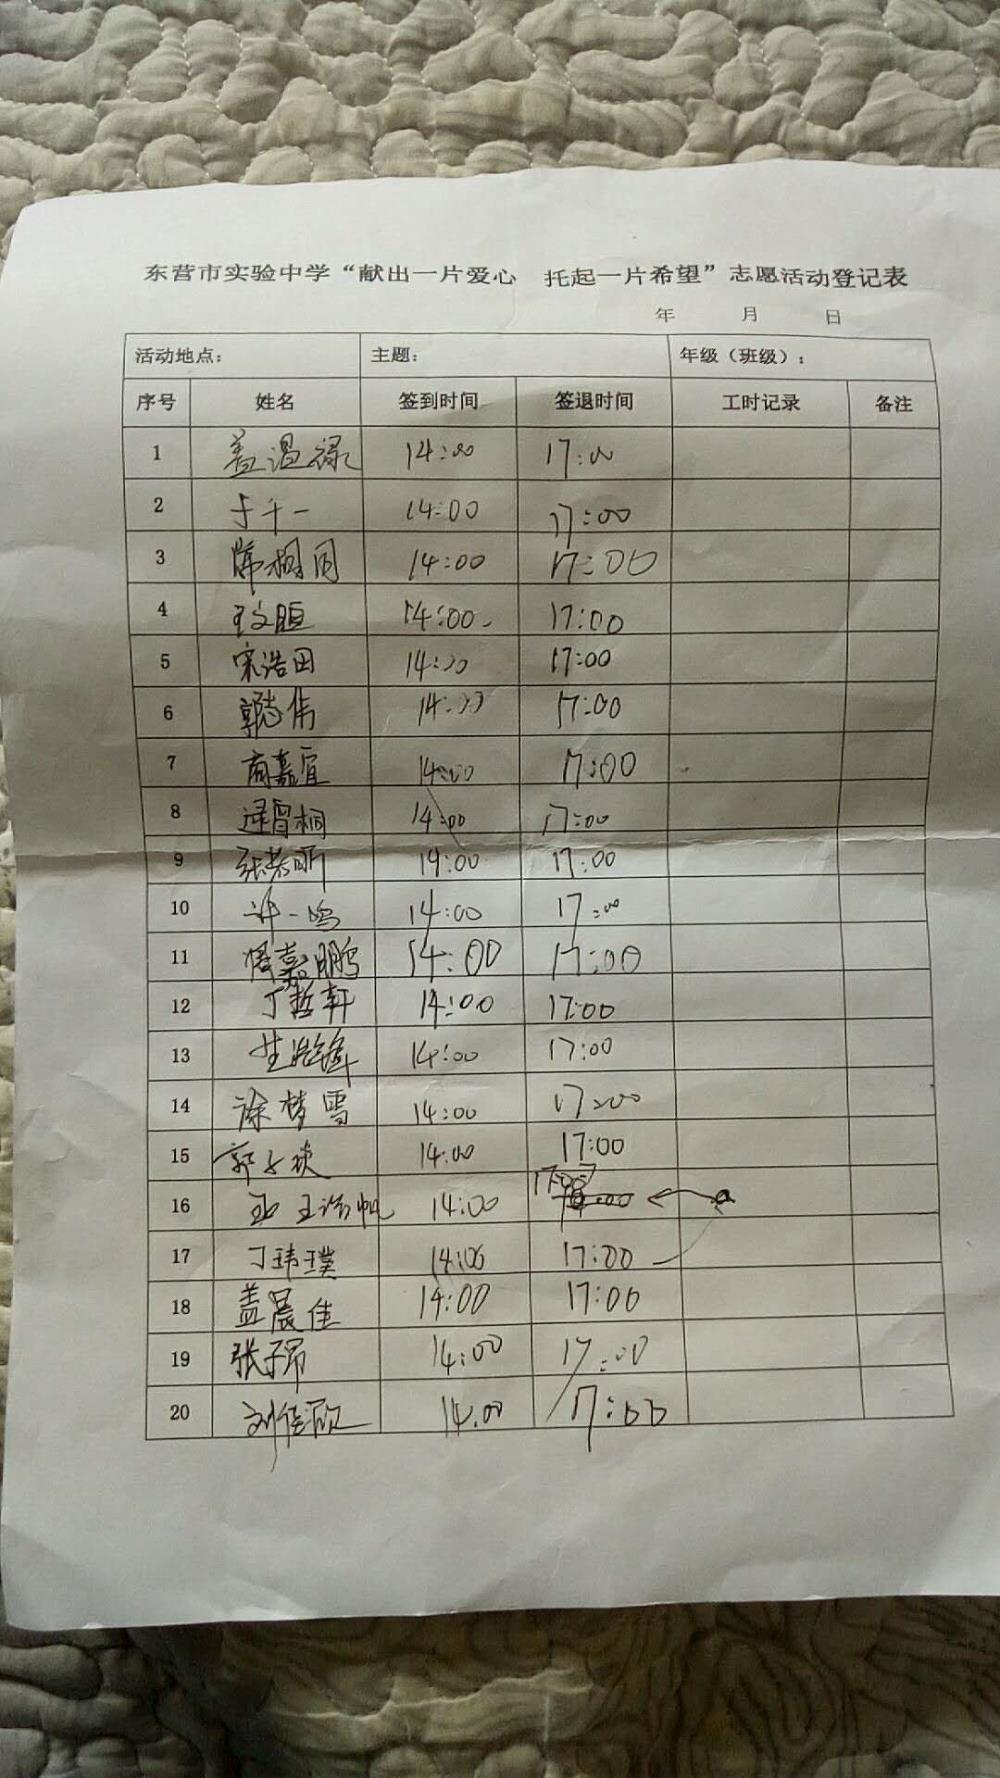 东营市实验中学“献出一片爱心 托起一片希望”志愿活动登记表
年 月 日
活动地点： 主题： 年级（班级）：
序号 姓名 签到时间 签退时间 工时记录 备注
1 盖温禄 14:00 17:00
2 于千一 14:00 17:00
3 14:00 17:00
4 王文暄 14:00 17:00
5 宋浩田 14:00 17:00
6 郭志伟 14:00 17:00
7 商嘉宜 14:00 17:00
8 逯曾桐 14:00 17:00
9 14:00 17:00
10 许一鸣 14:00 17:00
11 嘉鹏 14:00 17:00
12 丁哲轩 14:00 17:00
13 14:00 17:00
14 徐梦雪 14:00 17:00
15 郭 14:00 17:00
16 王 14:00 17:00
17 丁玮璞 14:00 17:00
18 盖晨佳 14:00 17:00
19 张子昂 14:00 17:00
20 刘佳欣 14.00 17:00